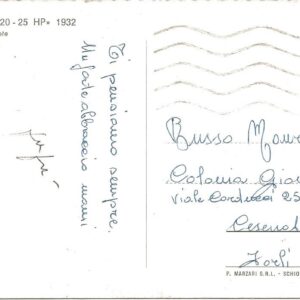 20-25 HP• 1932
Ti pensiamo sempre.
Un forte abbraccio mami
Russo Maur
Colonia Gios
viale Carducci 25
Cesenat
Forlì
P. MARZARI S.R.L. - SCHIO